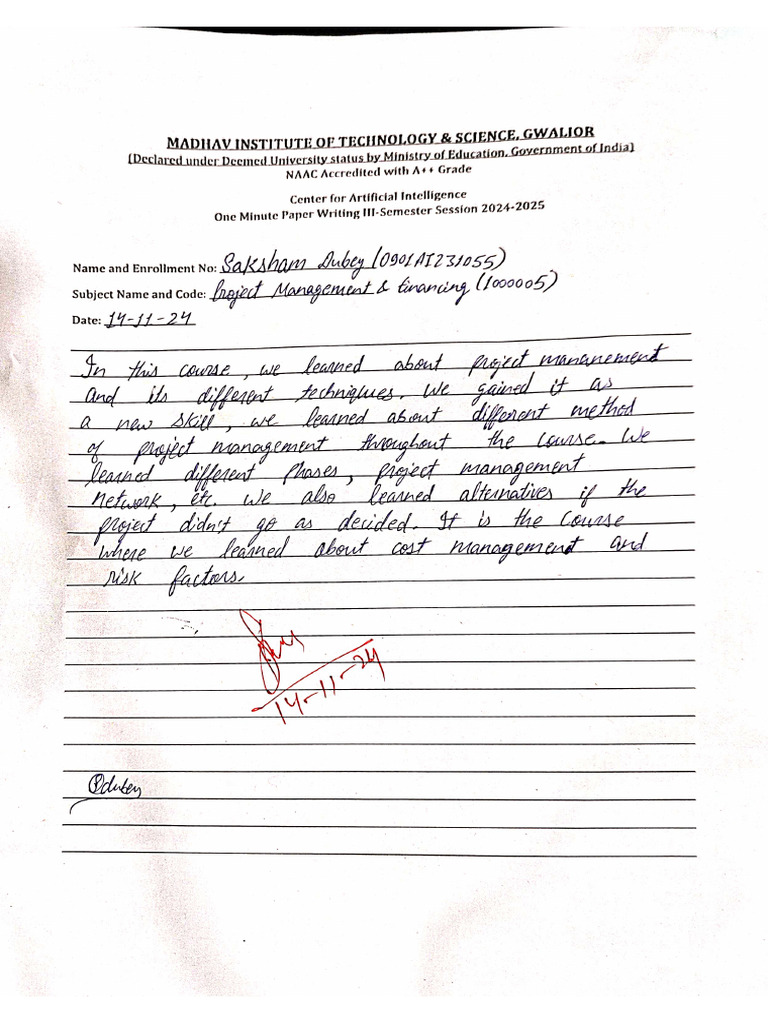 MADHAV INSTITUTE OF TECHNOLOGY & SCIENCE, GWALIOR
(Declared under Deemed University status by Ministry of Education, Government of India)
NAAC Accredited with A++ Grade
Center for Artificial Intelligence
One Minute Paper Writing III-Semester Session 2024-2025
Name and Enrollment No: Saksham Dubey (0901AI231055)
Subject Name and Code: Project Management & Financing (1000005)
Date: 14-11-24
In this course, we learned about project mananement
and its different techniques. We gained it as
a new skill, we learned about different method
of project management throughout the course. We
learned different phases, project management
network, etc. We also learned alternatives if the
project didn't go as decided. It is the course
where we learned about cost management and
risk factors.
14-11-24
Sdubey